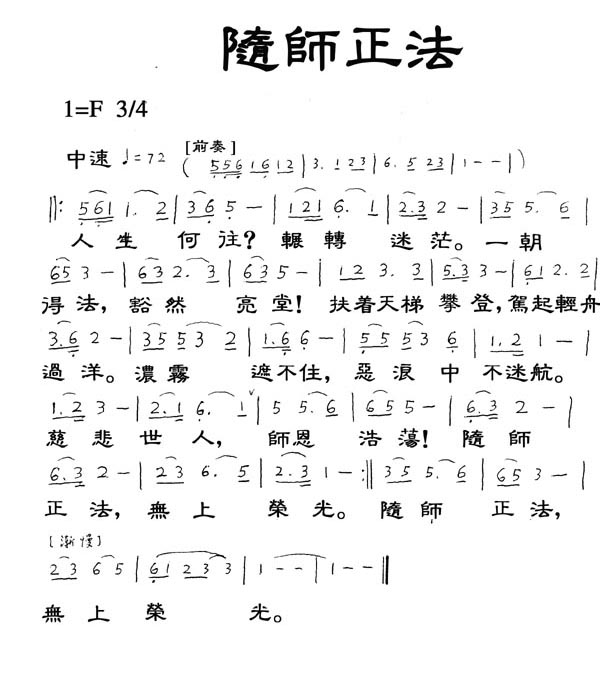 隨師正法
1=F 3/4
中速 ♩=72 [前奏] ( 5 5 6 1 6 1 2 | 3. 1 2 3 | 6. 5 2 3 | 1 - - | )
‖: 5 6 1 1. 2 | 3 6 5 - | 1 2 1 6. 1 | 2. 3 2 - | 3 5 5. 6 |
人生 何往？輾轉 迷茫。一朝
6 5 3 - | 6 3 2. 3 | 6 3 5 - | 1 2 3. 3 | 5. 3 3 - | 6 1 2. 2 |
得法，豁然 亮堂！扶着天梯攀登，駕起輕舟
3. 6 2 - | 3 5 5 3 2 | 1. 6 6 - | 5 5 5 3 6 | 1. 2 1 - |
過洋。濃霧 遮不住，惡浪中不迷航。
1. 2 3 - | 2. 1 6. 1 ∨ | 5 5. 6 | 6 5 5 - | 6. 3 2 - |
慈悲世人，師恩 浩蕩！隨師
6. 3 2 - | 2 3 6. 5 | 2. 3 1 - :‖ 3 5 5. 6 | 6 5 3 - |
正法，無上 榮光。隨師 正法，
[漸慢]
2 3 6 5 | 6 1 2 3 3 | 1 - - | 1 - - ‖
無上 榮 光。